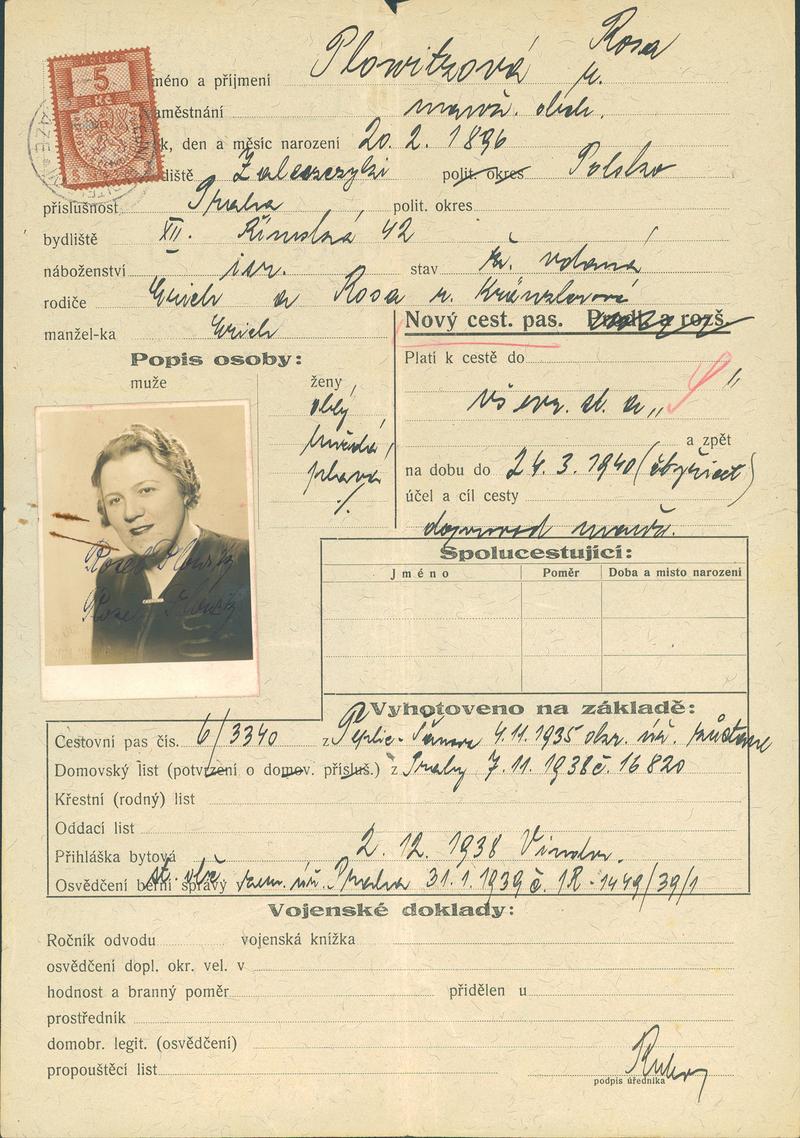 5
Kč
jméno a příjmení Plowitzová Rosa r.
zaměstnání manž. obch.
k, den a měsíc narození 20. 2. 1896
diště Zaleszczyki polit. okres Polsko
příslušnost Praha polit. okres
bydliště XII. Římská 42
náboženství isr. stav ž. vdaná
rodiče Erich a Rosa r. Kränzlerová
manžel-ka Erich
Nový cest. pas. Prodl. a rozš.
Popis osoby:
Platí k cestě do
muže ženy
vš evr. st. a „S“
oblý
hnědá
plavá
%
a zpět
na dobu do 24. 3. 1940 (čtyřicet)
účel a cíl cesty
doprovod manž.
Rosa Plowitz
Spolucestující:
Jméno Poměr Doba a misto narození
Vyhotoveno na základě:
Cestovní pas čís. 6/3340 z Teplic-Šanova 4.11.1935 okr. úř.
Domovský list (potvrzení o domov. přísluš.) z Prahy 7.11.1938 č. 16820
Křestní (rodný) list
Oddací list
Přihláška bytová 2. 12. 1938 Vinohr.
Osvědčení berní správy zem. úř. Praha 31.1.1939 č. 1R-1449/39/1
Vojenské doklady:
Ročník odvodu vojenská knížka
osvědčení dopl. okr. vel. v
hodnost a branný poměr přidělen u
prostředník
domobr. legit. (osvědčení)
propouštěcí list
podpis úředníka